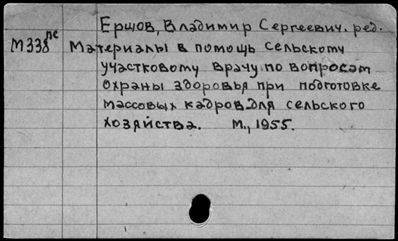 Ершов, Владимир Сергеевич. ред.
М338пе Материалы в помощь сельскому
участковому врачу по вопросам
охраны здоровья при подготовке
массовых кадров для сельского
хозяйства. М., 1955.